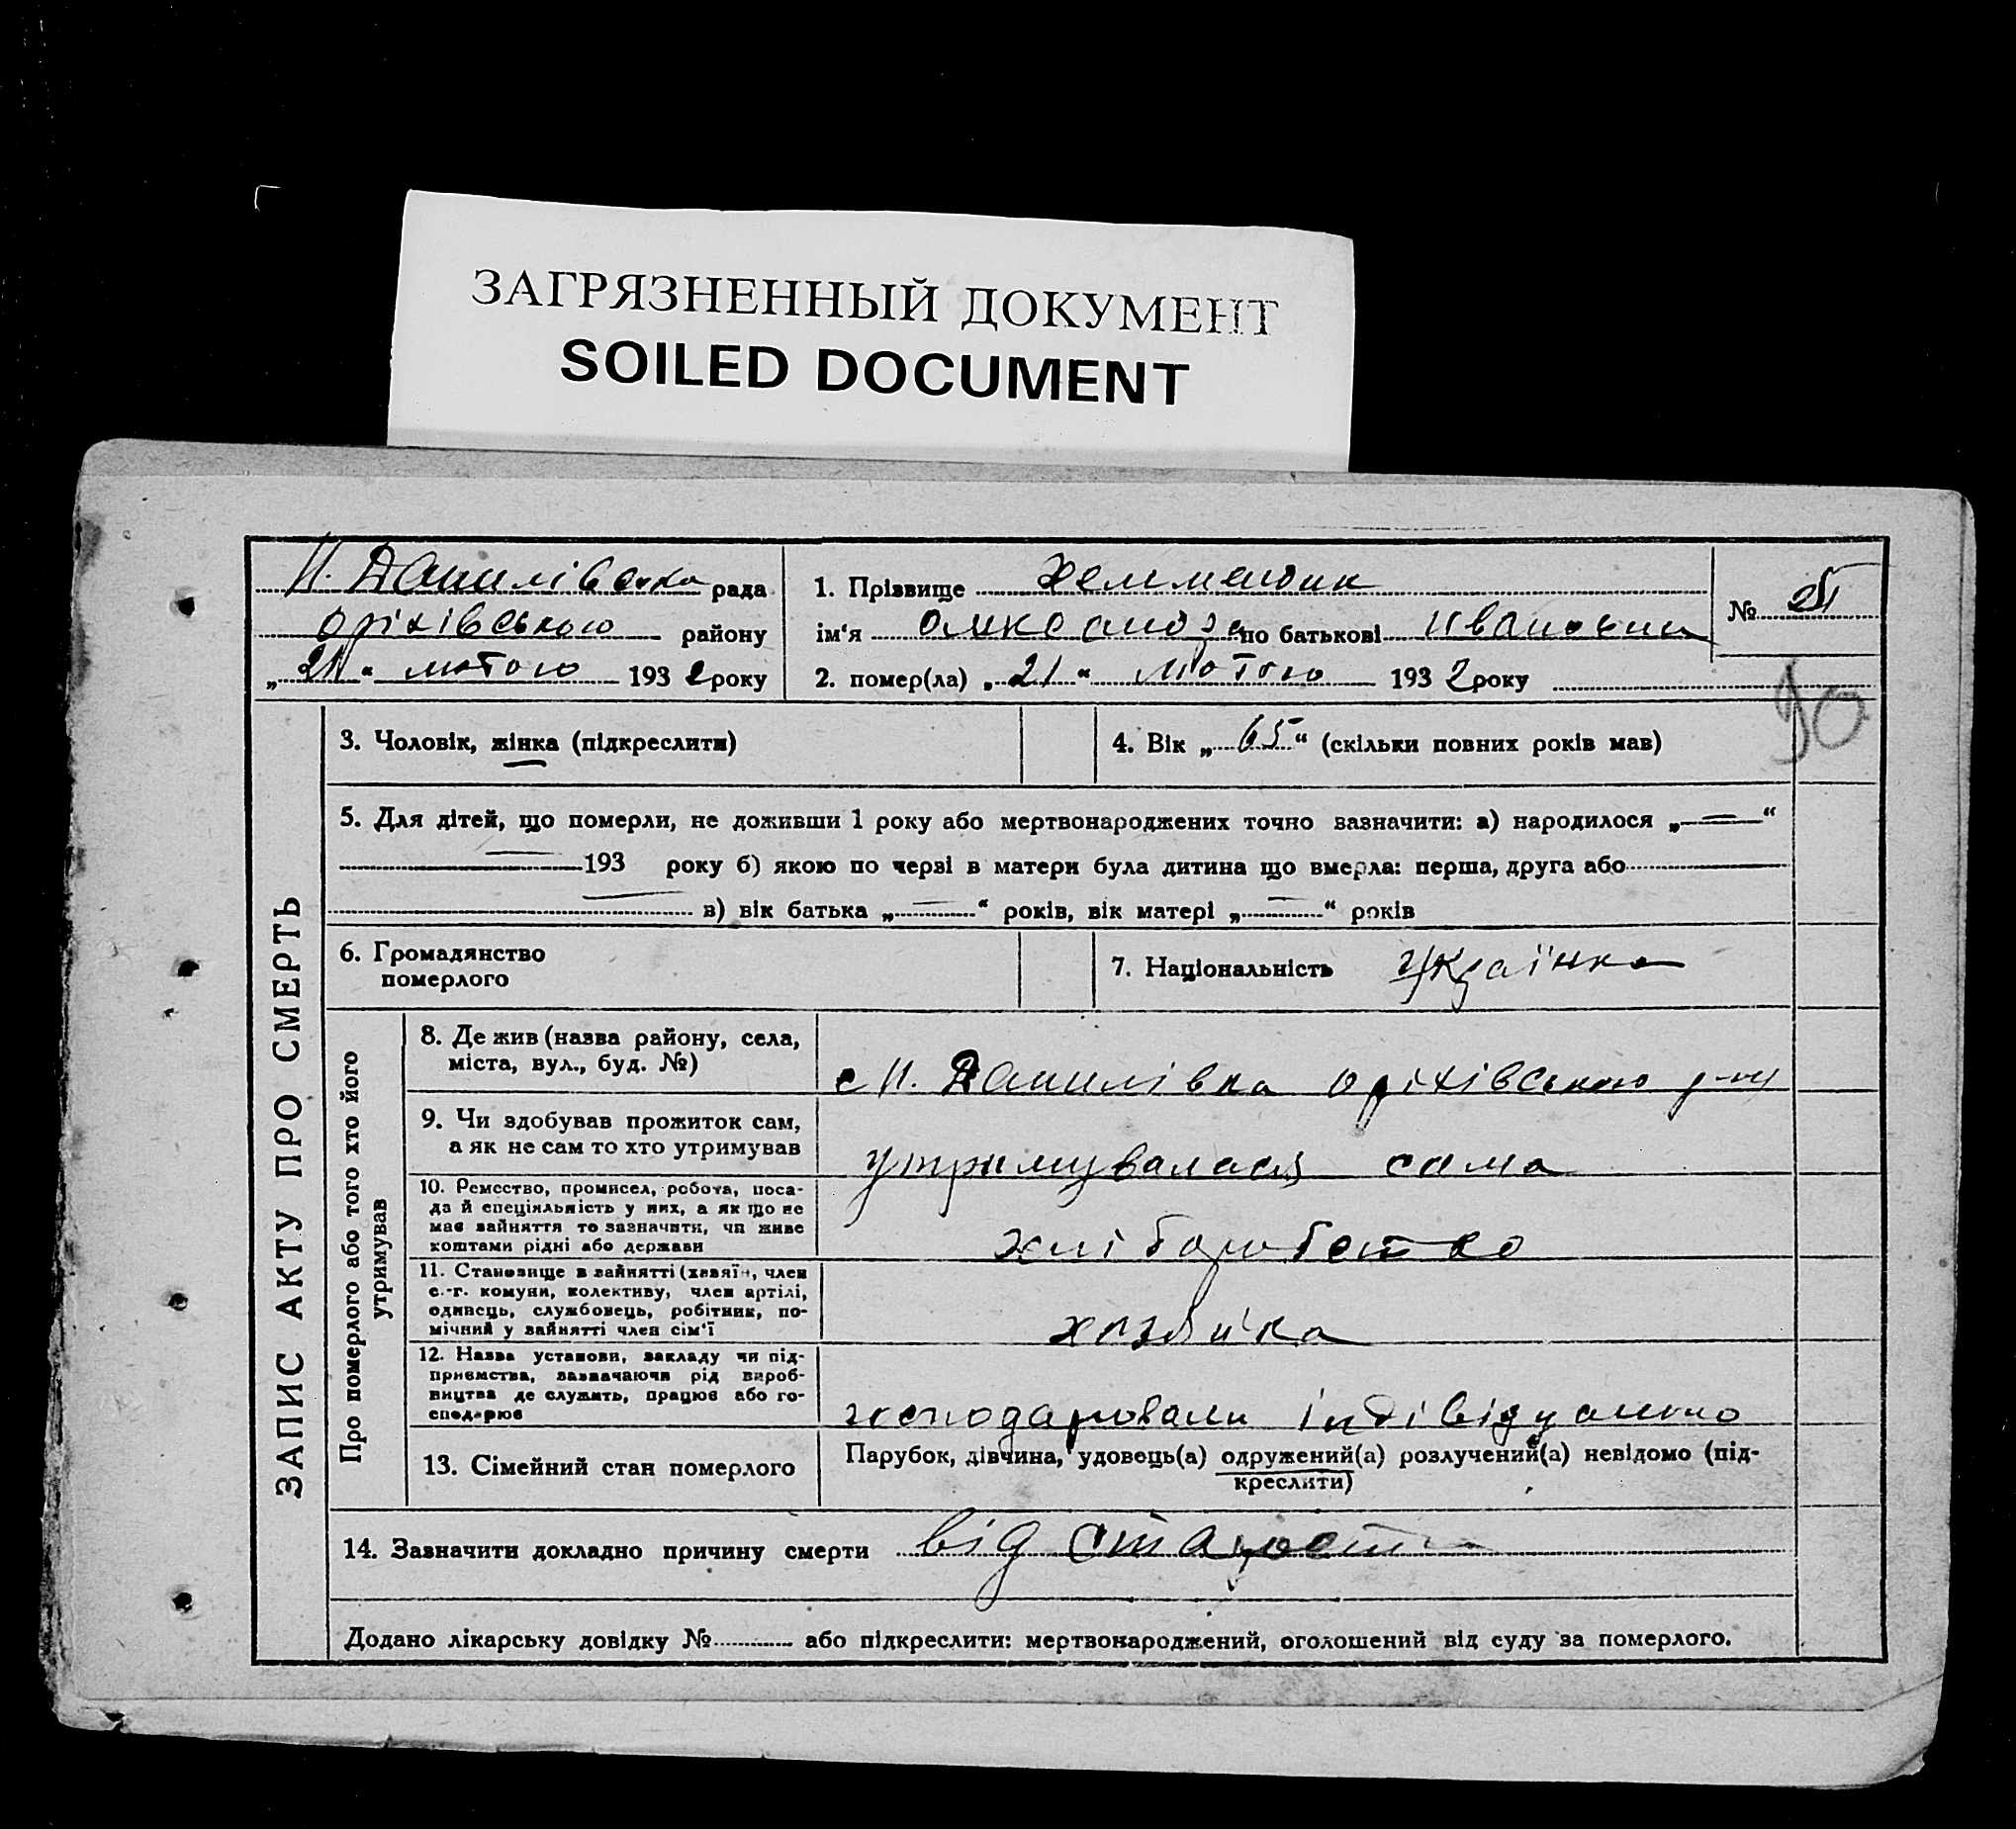 ЗАГРЯЗНЕННЫЙ ДОКУМЕНТ
SOILED DOCUMENT
Н. Данилівська рада
Оріхівського району
„21“ лютого 1932 року
1. Прізвище
ім‘я по батькові
2. помер(ла) „21“ лютого 1932 року
№
90
ЗАПИС АКТУ ПРО СМЕРТЬ
3. Чоловік, жінка (підкреслити)
4. Вік „65“ (скільки повних років мав)
5. Для дітей, що померли, не доживши 1 року або мертвонароджених точно зазначити: а) народилося „—“
— 193 року б) якою по черзі в матери була дитина що вмерла: перша, друга або
— в) вік батька „—“ років, вік матері „—“ років
6. Громадянство
померлого
7. Національність українка
Про померлого або того хто його
утримував
8. Де жив (назва району, села,
міста, вул., буд. №)
с Н. Данилівка оріхівського р-ну
9. Чи здобував прожиток сам,
а як не сам то хто утримував
утримувалася сама
10. Ремество, промисел, робота, поса-
да й спеціяльність у них, а як що не
має зайняття то зазначити, чи живе
коштами рідні або держави
хліборобство
11. Становище в зайнятті (хазяїн, член
с.-г. комуни, колективу, член артілі,
одинець, службовець, робітник, по-
мічний у зайнятті член сім‘ї
хазяйка
12. Назва установи, закладу чи під-
приємства, зазначаючи рід вироб-
ництва де служить, працює або го-
сподарює
господарювали індівідуально
13. Сімейний стан померлого
Парубок, дівчина, удовець(а) одружений(а) розлучений(а) невідомо (під-
креслити)
14. Зазначити докладно причину смерти від старости
Додано лікарську довідку № або підкреслити: мертвонароджений, оголошений від суду за померлого.